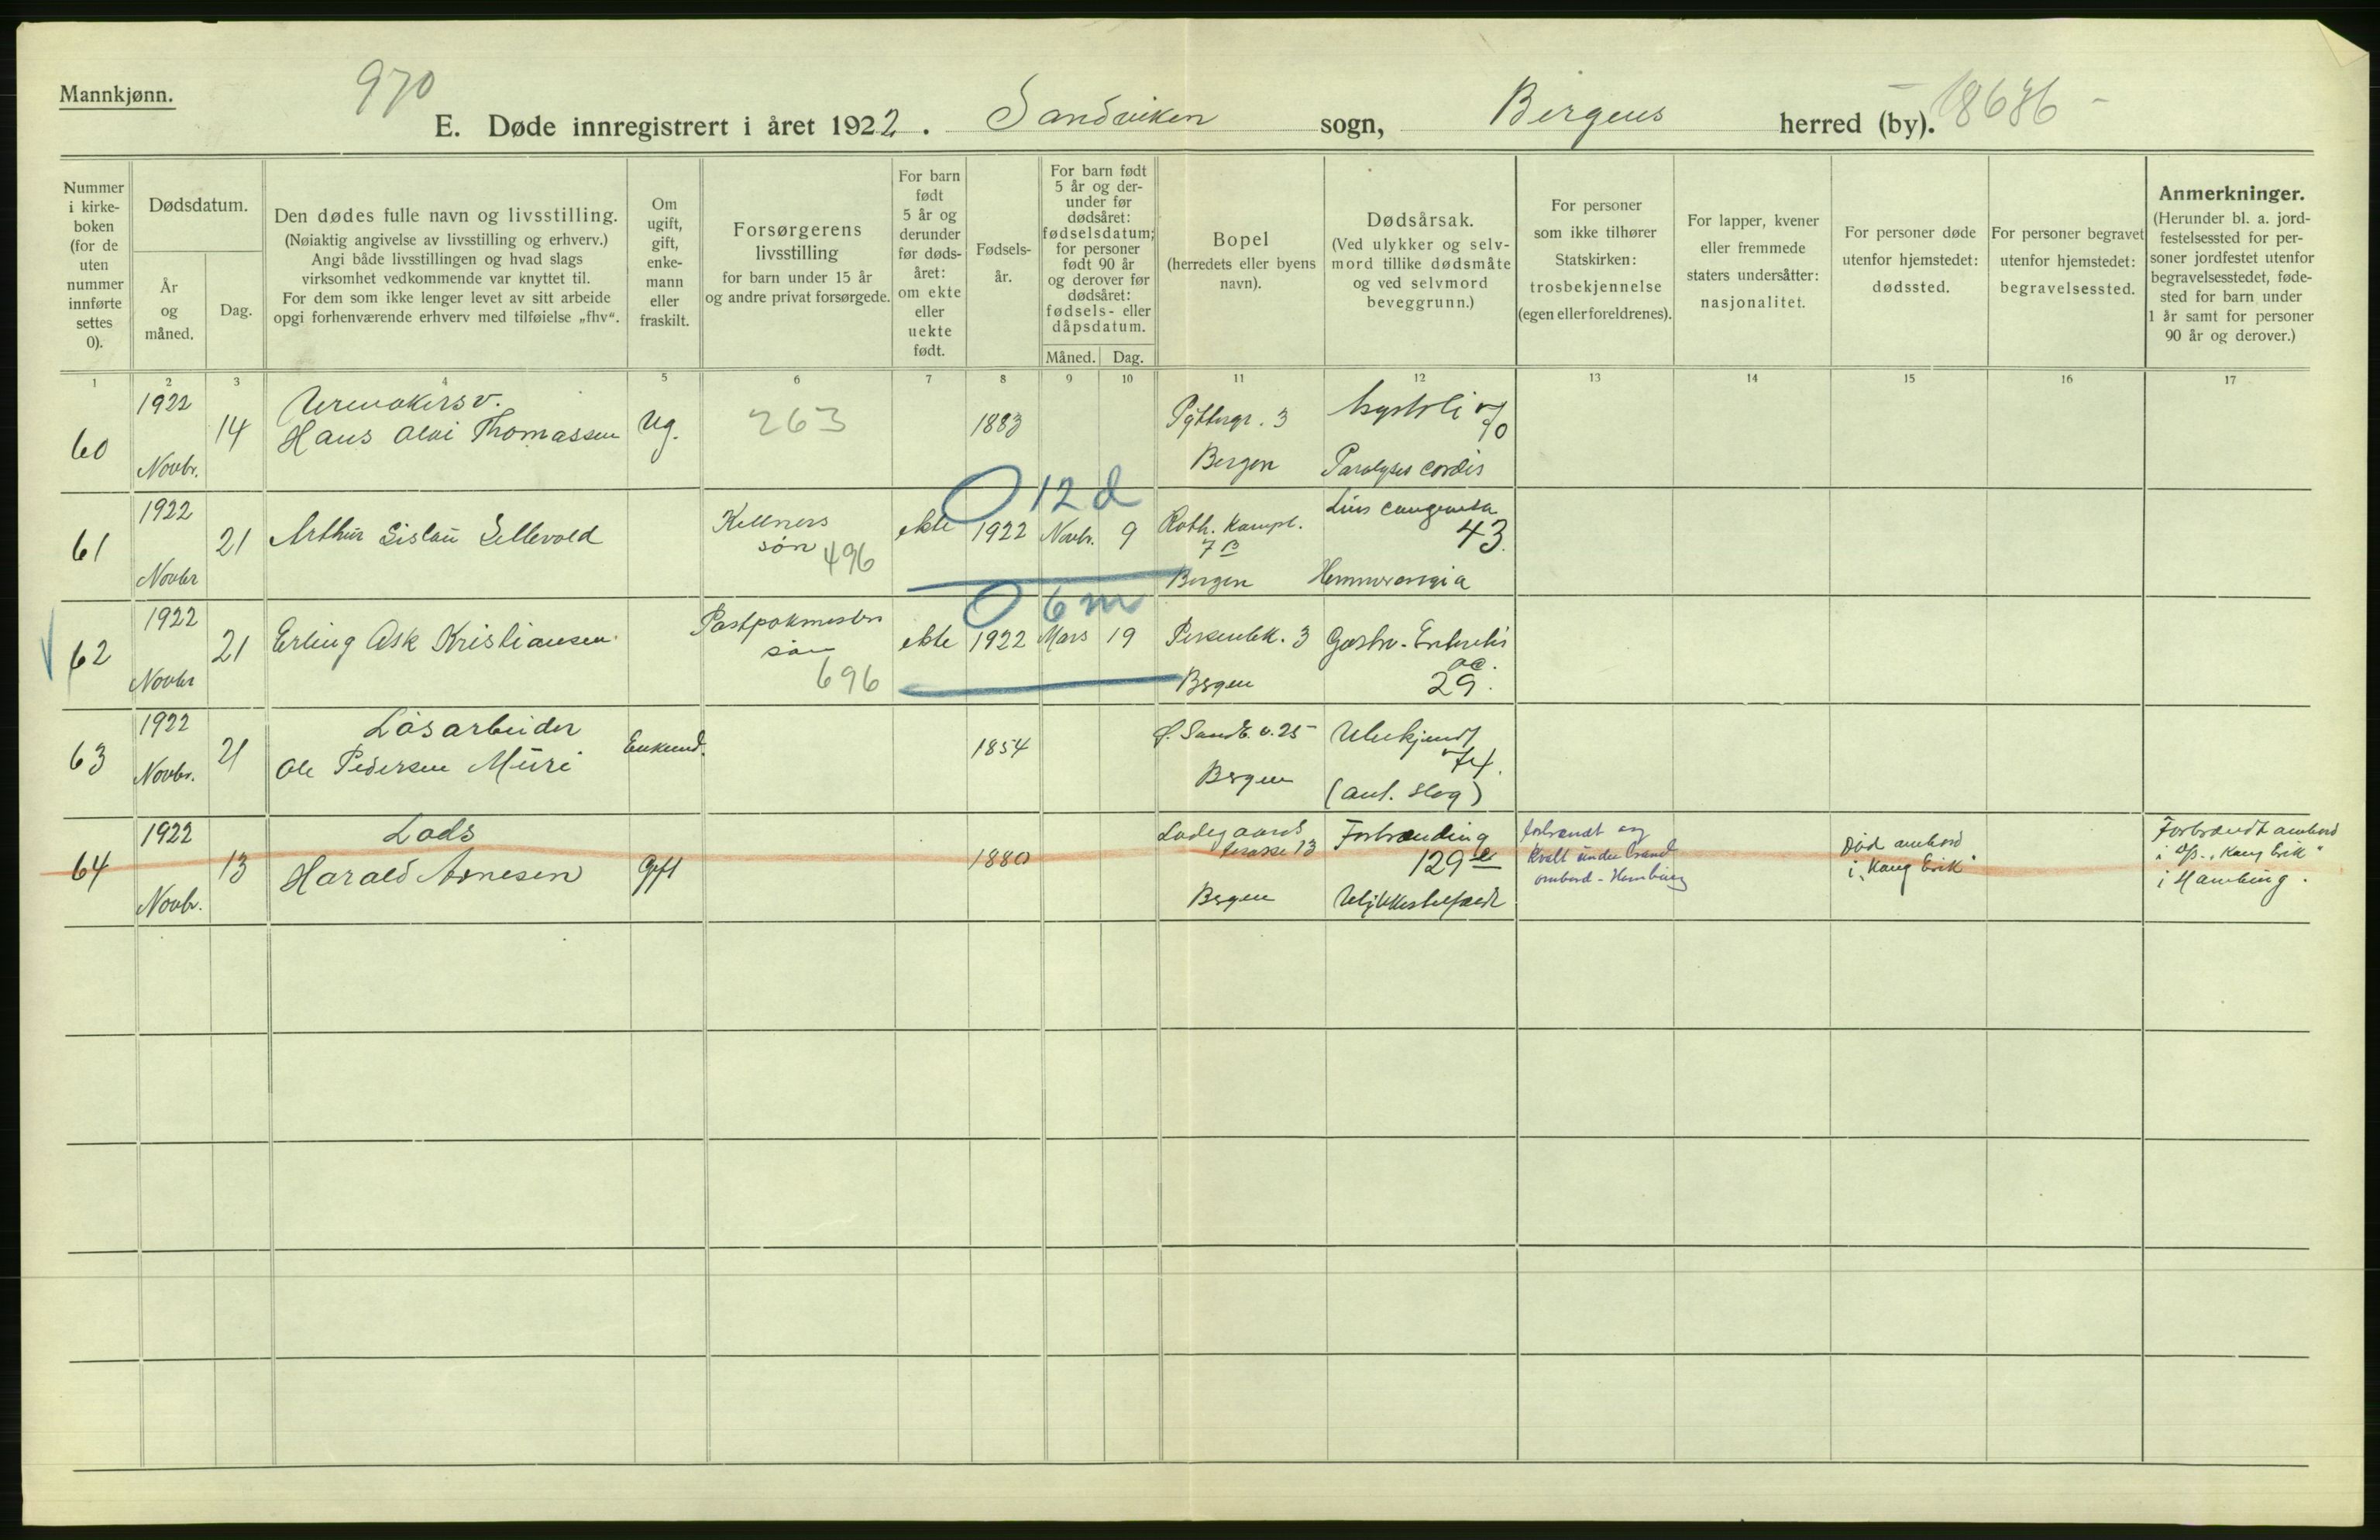 Mannkjønn.
970
E. Døde innregistrert i året 1922. Sandviken sogn, Bergens herred (by). 18636
Nummer i kirke-boken (for de uten nummer innførte settes 0).
Dødsdatum.
År og måned.
Dag.
Den dødes fulle navn og livsstilling.
(Nøiaktig angivelse av livsstilling og erhverv.)
Angi både livsstillingen og hvad slags
virksomhet vedkommende var knyttet til.
For dem som ikke lenger levet av sitt arbeide
opgi forhenværende erhverv med tilføielse „fhv“.
Om ugift, gift, enke-mann eller fraskilt.
Forsørgerens livsstilling
for barn under 15 år
og andre privat forsørgede.
For barn født 5 år og derunder før døds-året: om ekte eller uekte født.
Fødsels-år.
For barn født 5 år og der-under før dødsåret: fødselsdatum; for personer født 90 år og derover før dødsåret: fødsels- eller dåpsdatum.
Måned. Dag.
Bopel
(herredets eller byens navn).
Dødsårsak.
(Ved ulykker og selv-mord tillike dødsmåte og ved selvmord beveggrunn.)
For personer som ikke tilhører Statskirken: trosbekjennelse (egen eller foreldrenes).
For lapper, kvener eller fremmede staters undersåtter: nasjonalitet.
For personer døde utenfor hjemstedet: dødssted.
For personer begravet utenfor hjemstedet: begravelsessted.
Anmerkninger.
(Herunder bl. a. jord-festelsessted for per-soner jordfestet utenfor begravelsesstedet, føde-sted for barn under 1 år samt for personer 90 år og derover.)
1 2 3 4 5 6 7 8 9 10 11 12 13 14 15 16 17
60 1922 Novbr. 14 Urmakersv.
Hans Thomassen Ug. 263 1883 3 Bergen 90
Paralysis cordis
O 12 d
61 1922 Novbr 21 Arthur Sellevold Kellners søn 496 ekte 1922 Novbr. 9 Roth. kampt. 7 B Bergen 43.
O 6 m
62 1922 Novbr 21 Erling Ask Kristiansen søn 696 ekte 1922 Mars 19 3 Bergen Gastro-Enteritis ac. 29.
63 1922 Novbr. 21 Løsarbeider
Ole Pedersen Muri Enkemd. 1854 Bergen Ubekjendt 74.
(ant. slag)
64 1922 Novbr. 13 Lods
Harald Arnesen Gift 1880 Ladegaards terasse 13 Bergen Forbrænding 129 e
Ulykkestilfæld
forbrændt og kvalt under brand ombord - Hamburg
Død ombord i „Kong Erik“
Forbrændt ombord i „Kong Erik“ i Hamburg.